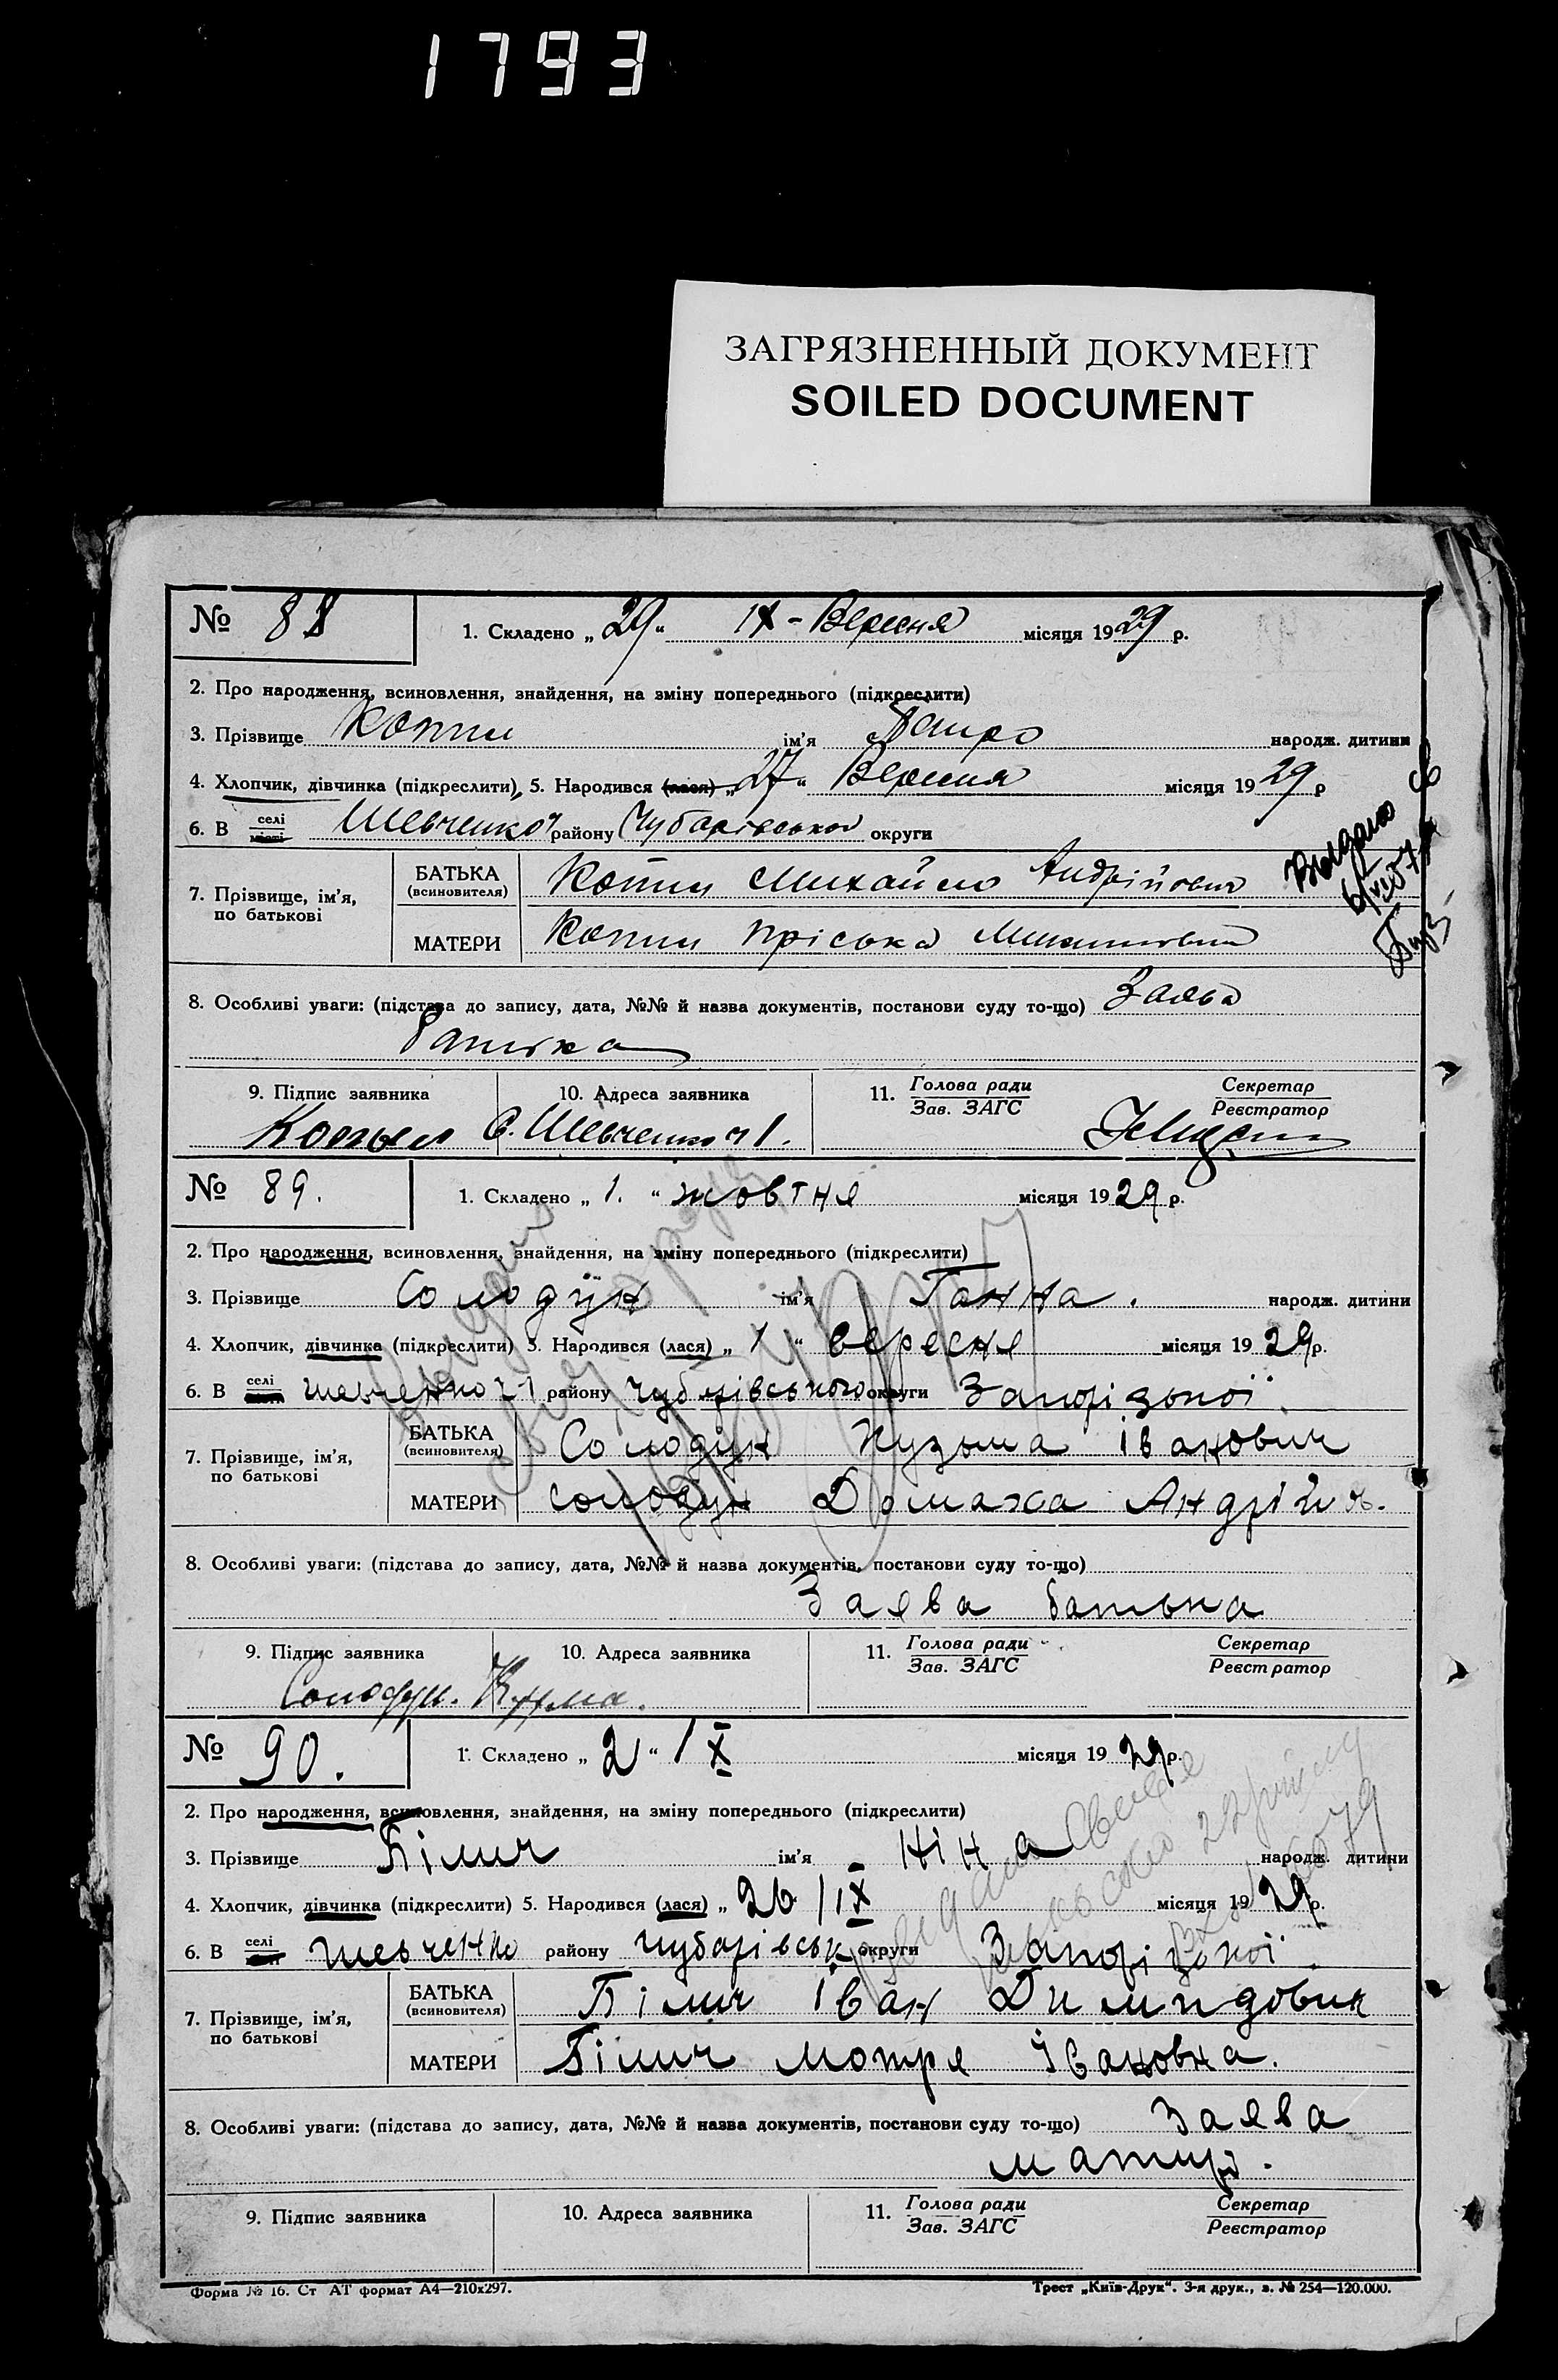 1793
ЗАГРЯЗНЕННЫЙ ДОКУМЕНТ
SOILED DOCUMENT
№ 88 1. Складено „ 29 “ IX - Вересня місяця 1929 р.
2. Про народження, всиновлення, знайдення, на зміну попереднього (підкреслити)
3. Прізвище ім’я народж. дитини
4. Хлопчик, дівчинка (підкреслити), 5. Народився (лася) „ 27 “ Вересня місяця 1929 р
6. В селі місті Шевченко району Чубарівського округи
7. Прізвище, ім’я, по батькові
БАТЬКА (всиновителя) Михайло Андрійович
МАТЕРИ Пріська
8. Особливі уваги: (підстава до запису, дата, №№ й назва документів, постанови суду то-що) Заява
батька
9. Підпис заявника 10. Адреса заявника 11. Голова ради Зав. ЗАГС Секретар Реєстратор
С. Шевченко ч 1.
№ 89. 1. Складено „ 1. “ жовтня місяця 1929 р.
2. Про народження, всиновлення, знайдення, на зміну попереднього (підкреслити)
3. Прізвище Солодун ім’я Ганна. народж. дитини
4. Хлопчик, дівчинка (підкреслити) 5. Народився (лася) „ 1 “ вересня місяця 1929 р.
6. В селі Шевченко ч-1 району Чубарівського округи Запорізької
7. Прізвище, ім’я, по батькові
БАТЬКА (всиновителя) Солодун Кузьма Іванович
МАТЕРИ Солодун Домаха Андрійов.
8. Особливі уваги: (підстава до запису, дата, №№ й назва документів, постанови суду то-що)
Заява батька
9. Підпис заявника 10. Адреса заявника 11. Голова ради Зав. ЗАГС Секретар Реєстратор
Солодун.
№ 90. 1. Складено „ 2 “ / X місяця 1929 р.
2. Про народження, всиновлення, знайдення, на зміну попереднього (підкреслити)
3. Прізвище Білич ім’я Ніна народж. дитини
4. Хлопчик, дівчинка (підкреслити) 5. Народився (лася) „ 26 / IX місяця 1929 р.
6. В селі Шевченко району Чубарівськ округи Запорізької.
7. Прізвище, ім’я, по батькові
БАТЬКА (всиновителя) Білич Іван Димидович
МАТЕРИ Білич Мотря Івановна.
8. Особливі уваги: (підстава до запису, дата, №№ й назва документів, постанови суду то-що) Заява
матирі.
9. Підпис заявника 10. Адреса заявника 11. Голова ради Зав. ЗАГС Секретар Реєстратор
Форма № 16. Ст АТ формат А4—210х297. Трест „Київ-Друк“. 3-я друк., з. № 254—120.000.